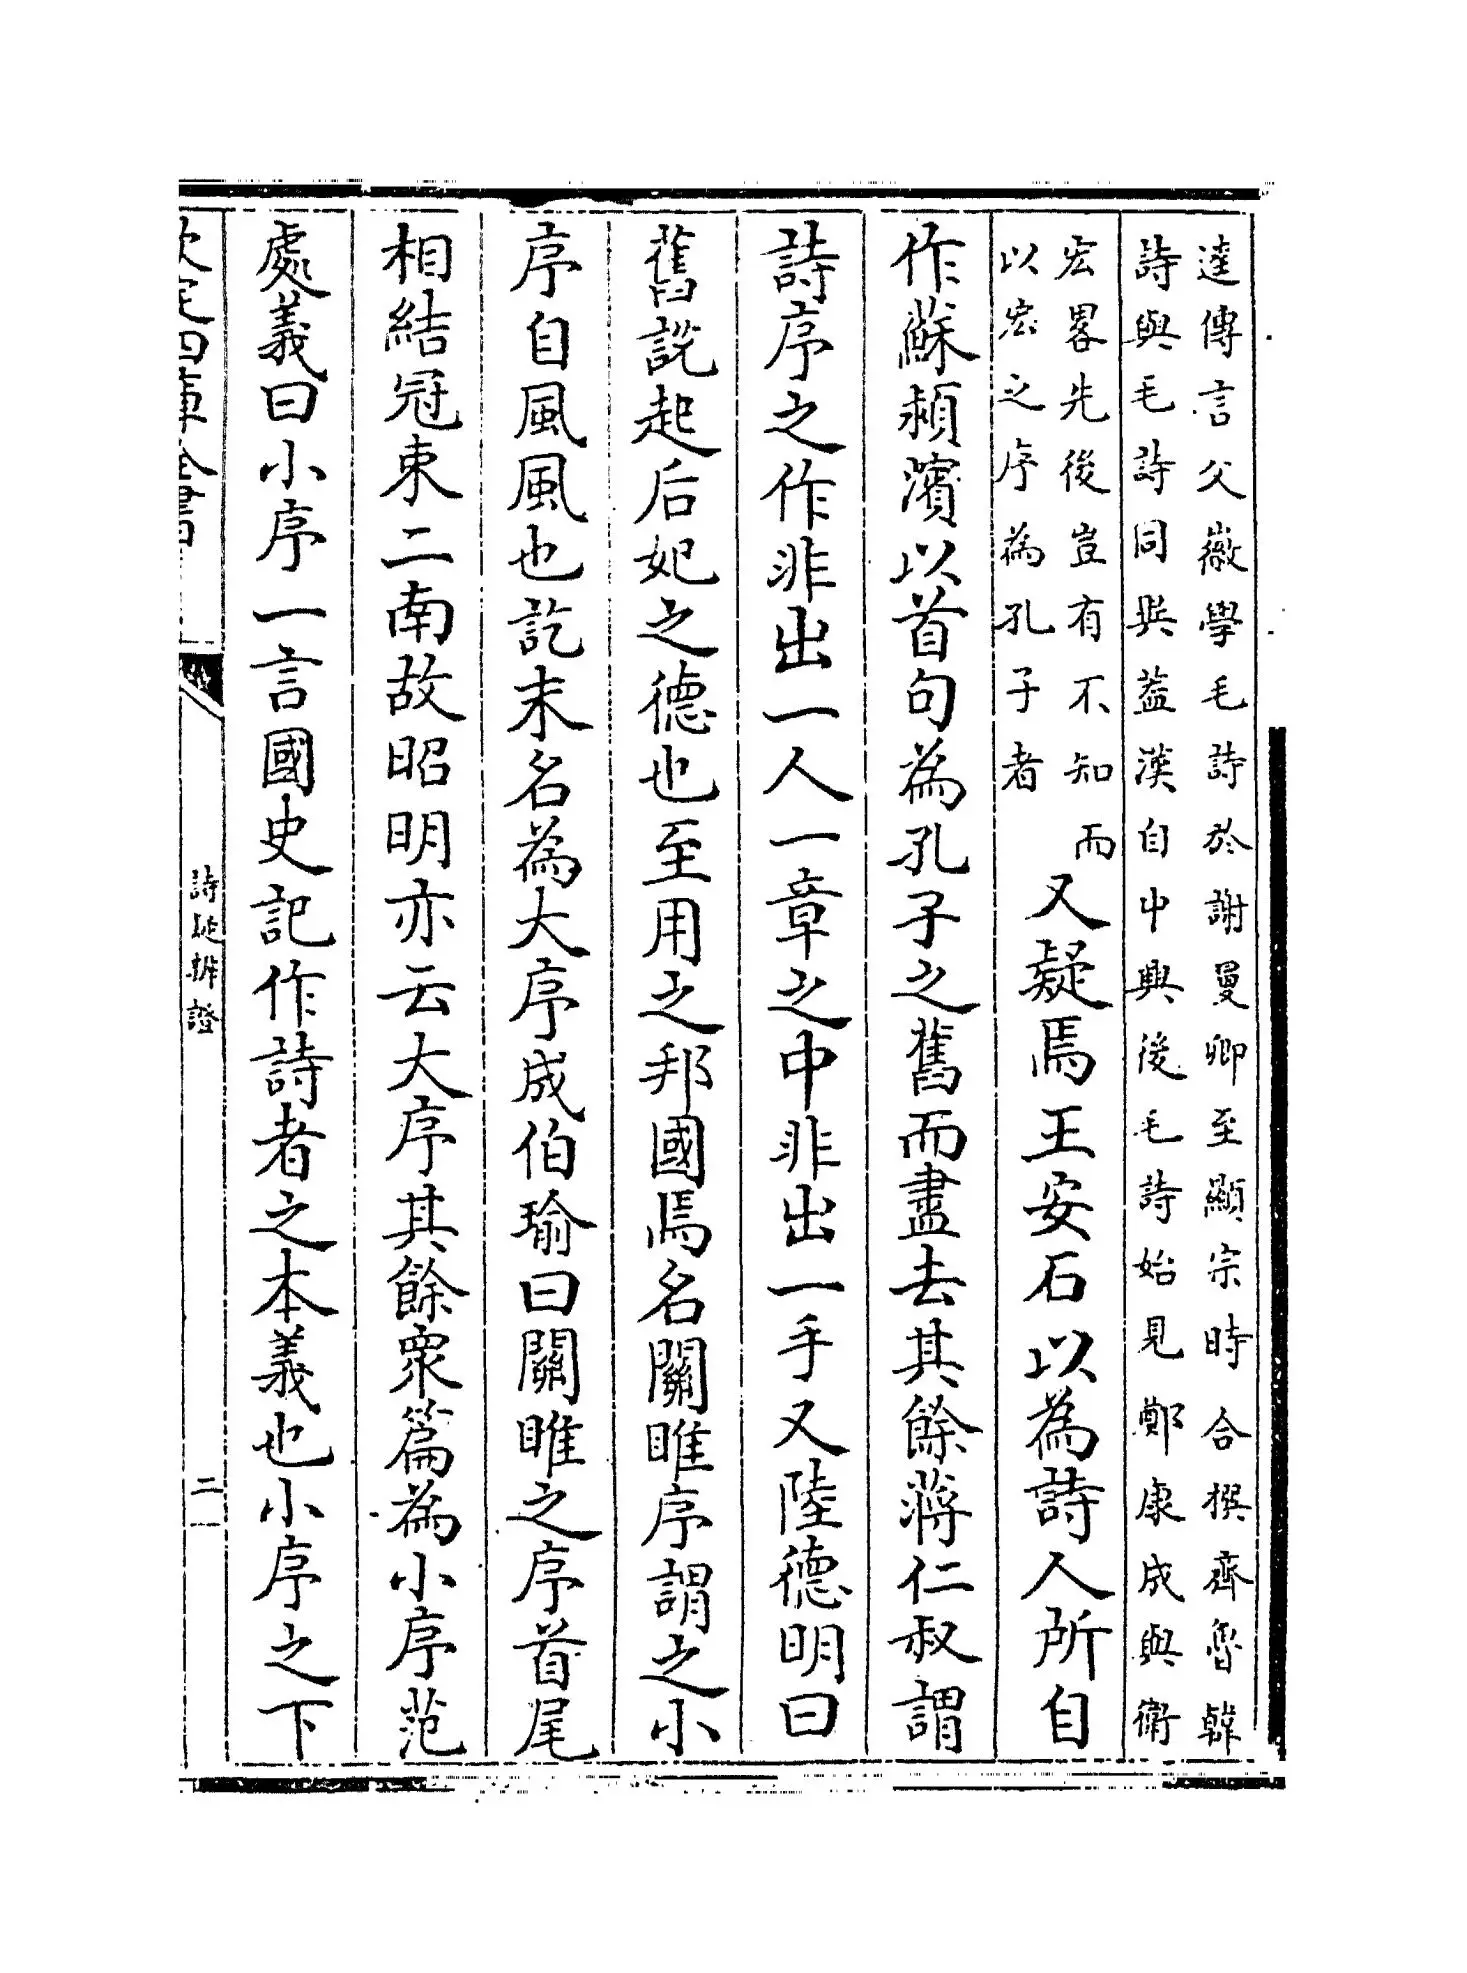 達傳言父徽學毛詩於謝曼卿至顯宗時合撰齊魯韓
詩與毛詩同異葢漢自中興後毛詩始見鄭康成與衛
宏畧先後豈有不知而
以宏之序為孔子者
又疑焉王安石以為詩人所自
作蘇頴濱以首句為孔子之舊而盡去其餘蔣仁叔謂
詩序之作非出一人一章之中非出一手又陸德明曰
舊説起后妃之德也至用之邦國焉名關雎序謂之小
序自風風也訖末名為大序成伯瑜曰關雎之序首尾
相結冠束二南故昭明亦云大序其餘衆篇為小序范
處義曰小序一言國史記作詩者之本義也小序之下
欽定四庫全書
詩疑辨證
二